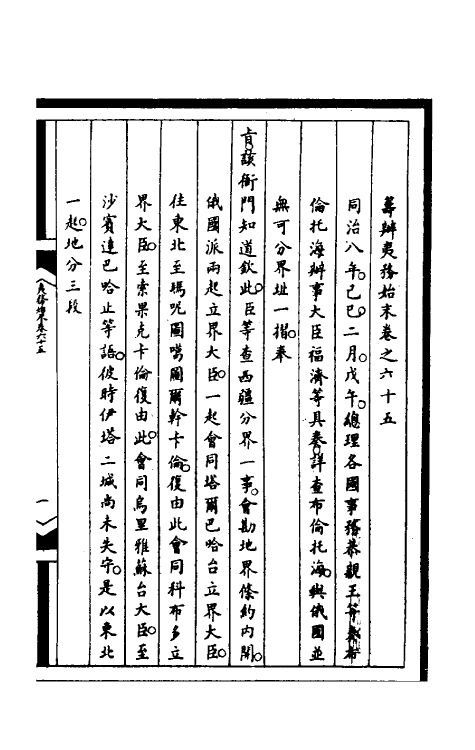 籌辦夷務始末卷之六十五
同治八年。己巳。二月。戊午。總理各國事務恭親王等奏
倫托海辦事大臣福濟等具奏。詳查布倫托海。與俄國並
無可分界址一摺。奉
旨。該衙門知道。欽此。臣等查西疆分界一事。會勘地界條約內開。
俄國派兩起立界大臣。一起會同塔爾巴哈台立界大臣。
往東北至瑪呢圖噶圖爾幹卡倫。復由此會同科布多立
界大臣。至索果克卡倫。復由此。會同烏里雅蘇台大臣。至
沙賓達巴哈止等語。彼時伊塔二城尚未失守。是以東北
一起。地分三段
夷務始末卷六十五
一